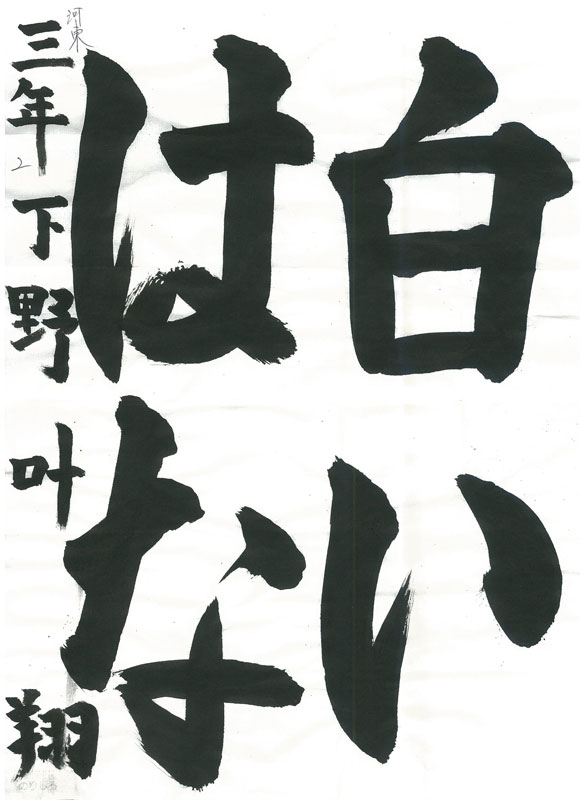 白い
はな
三年 下野 叶翔
河東
2